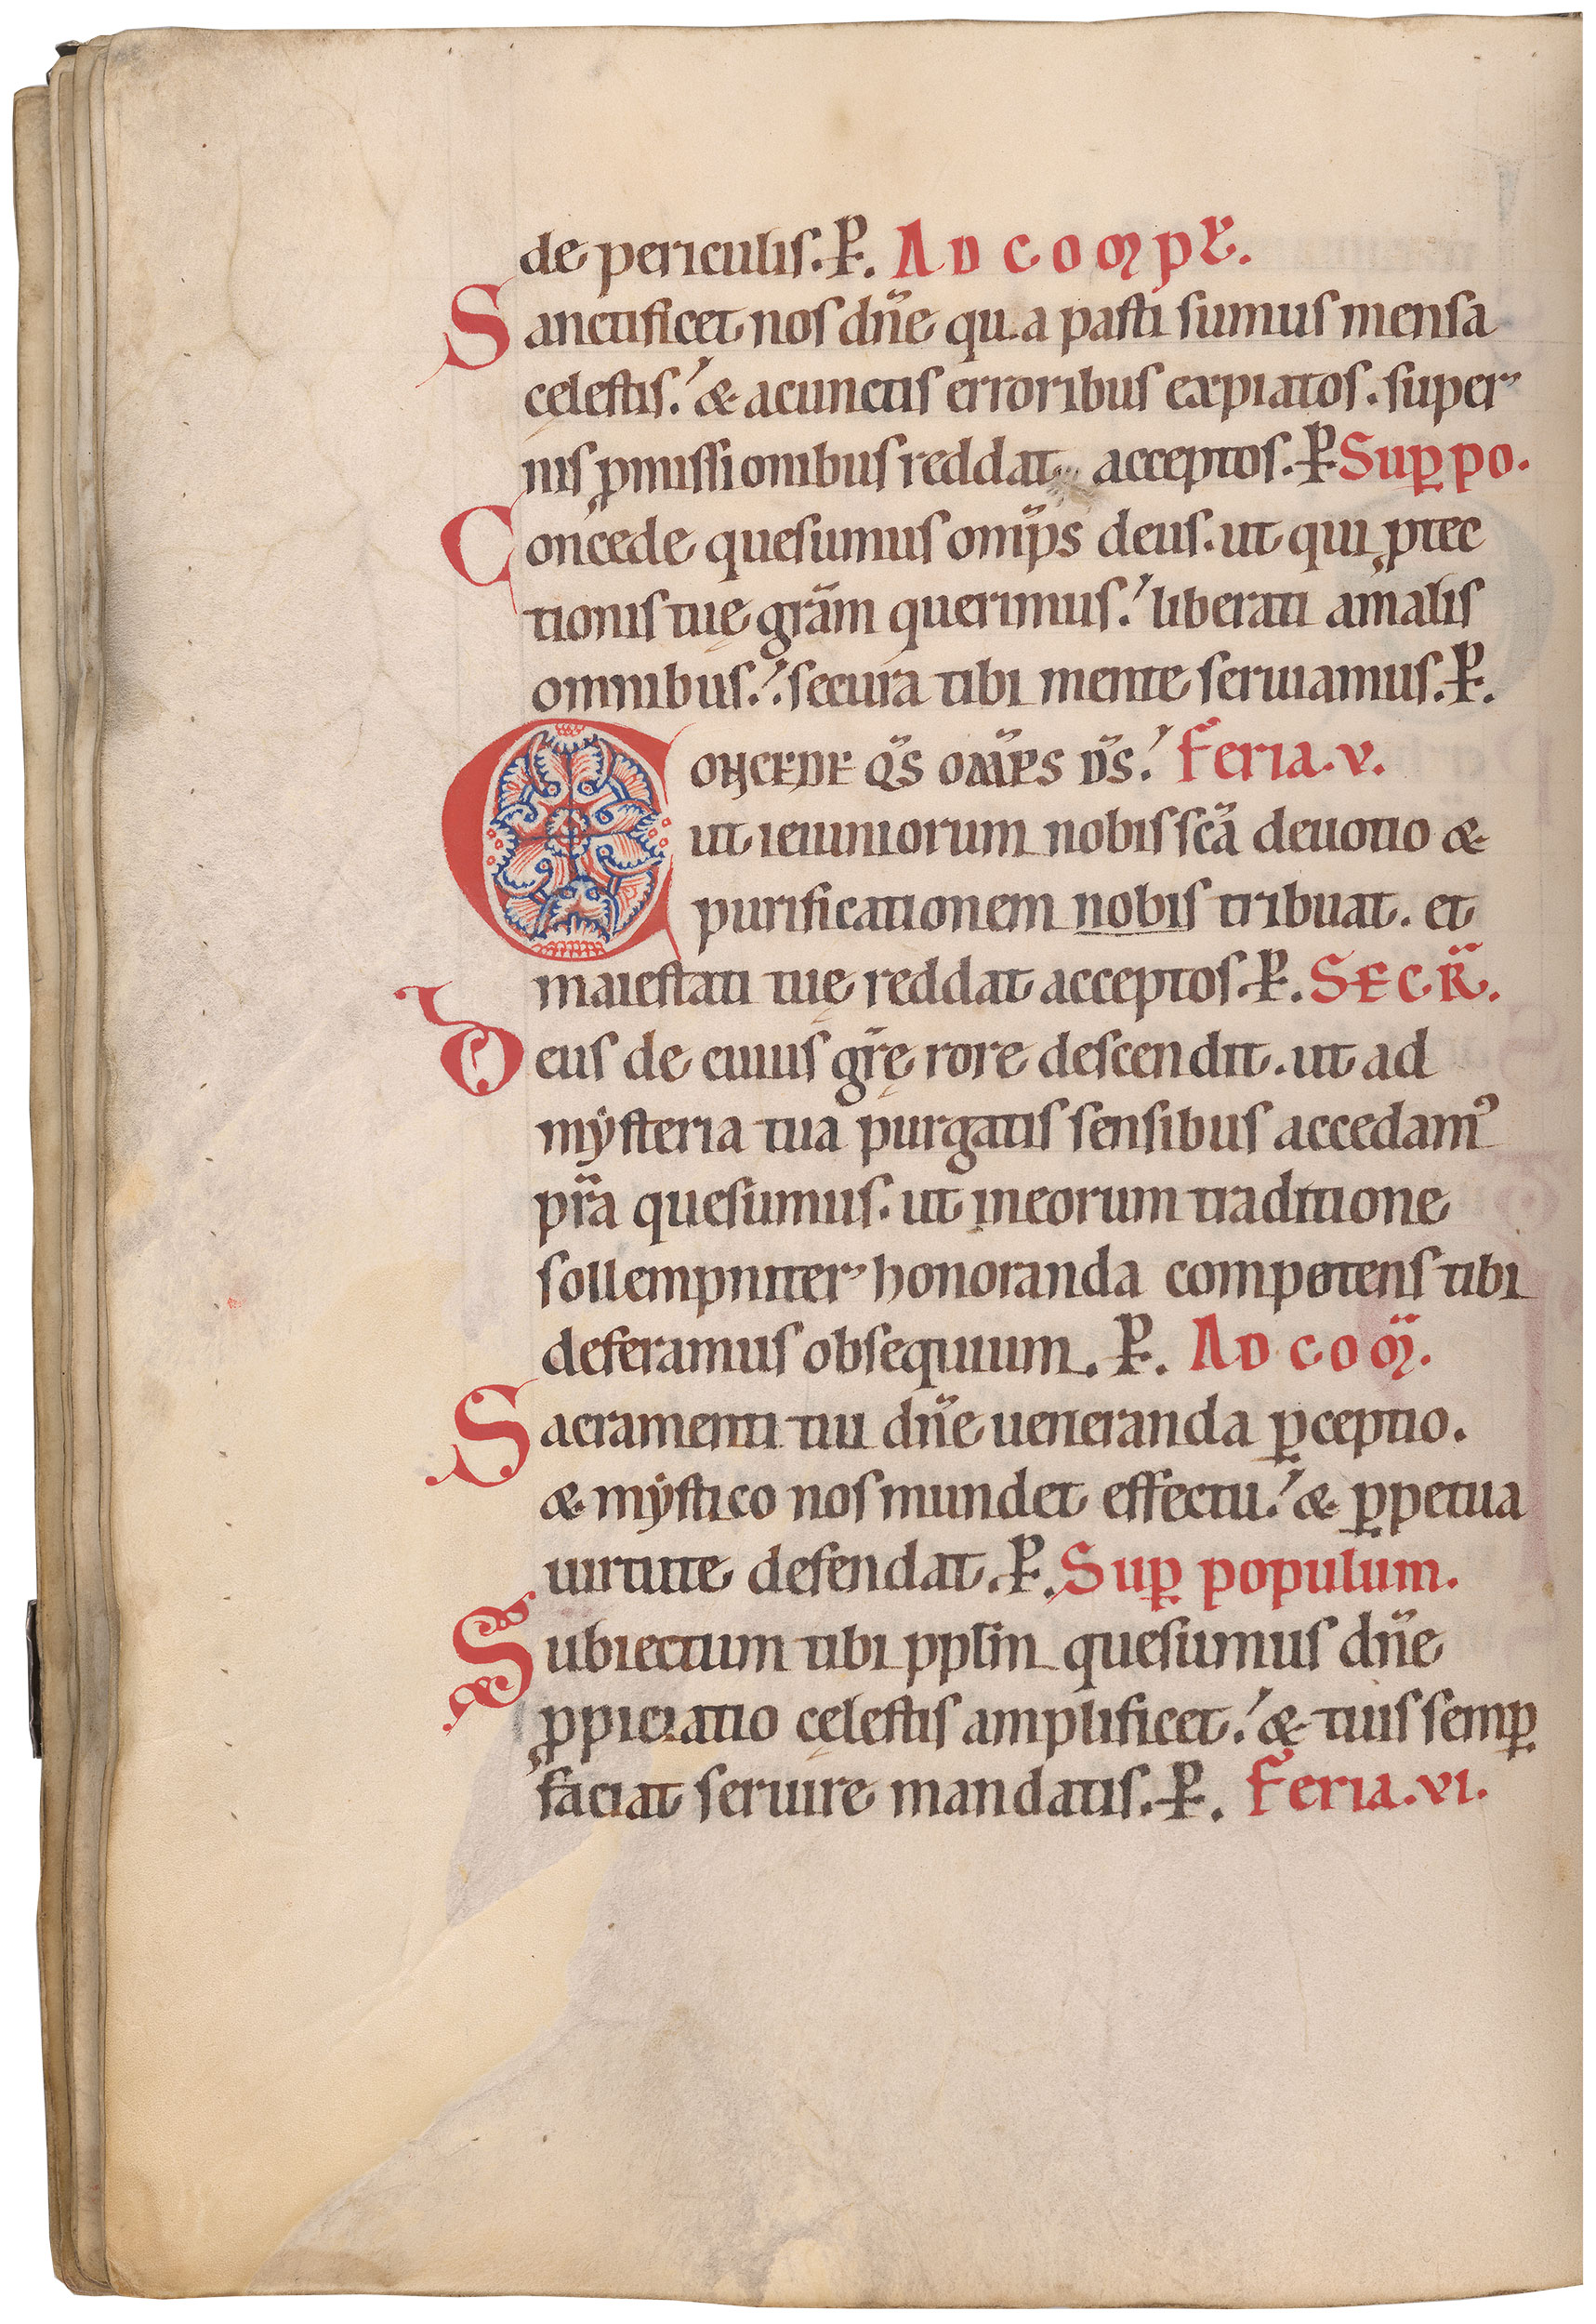 de periculis. P. AD COMPƦ.
Sanctificet nos dn̄e qua pasti sumus mensa
cęlestis. & acunctis erroribus expiatos. super
nis ꝓmissionibus reddat acceptos. P. Suꝑ po.
Concede quesumus omīps deus. ut qui ꝓtec
tionis tuę grām querimus. liberati amalis
omnibus. secura tibi mente seruiamus. P.
CONCEDE Q̄S OM̄PS D̄S. Feria. v.
ut ieiuniorum nobis sc̄a deuotio &
purificationem nobis tribuat. et
maiestati tuę reddat acceptos. P. SECR̄.
Deus de cuius gr̄ę rore descendit. ut ad
mẏsteria tua purgatis sensibus accedamꝰ
pr̄a quesumus. ut ineorum traditione
sollempniter honoranda competens tibi
deferamus obsequium. P. AD COM̄.
Sacramenti tui dn̄e ueneranda ꝑceptio.
& mẏstico nos mundet effectu. & ꝑpetua
uirtute defendat. P. Suꝑ populum.
Subiectum tibi ppl̄m quesumus dn̄e
ꝓpiciatio cęlestis amplificet. & tuis semꝑ
faciat seruire mandatis. P. Feria. vi.